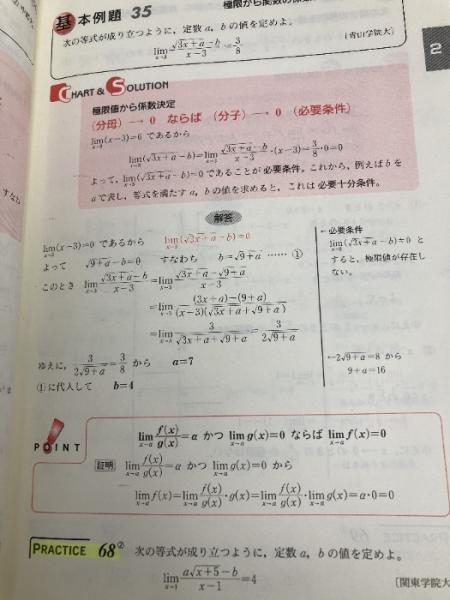 基本例題 35
次の等式が成り立つように，定数 a，b の値を定めよ。
lim_{x→3} (√(3x+a)−b)/(x−3) = 3/8
〔青山学院大〕
2
CHART & SOLUTION
極限値から係数決定
(分母) → 0 ならば (分子) → 0 (必要条件)
lim_{x→3}(x−3)=0 であるから
lim_{x→3}(√(3x+a)−b)=lim_{x→3} (√(3x+a)−b)/(x−3)・(x−3)=3/8・0=0
よって，lim_{x→3}(√(3x+a)−b)=0 であることが必要条件。これから，例えば b を
a で表し，等式を満たす a，b の値を求めると，これは必要十分条件。
解答
lim_{x→3}(x−3)=0 であるから lim_{x→3}(√(3x+a)−b)=0
よって √(9+a)−b=0 すなわち b=√(9+a) …… ①
このとき lim_{x→3} (√(3x+a)−b)/(x−3) =lim_{x→3} (√(3x+a)−√(9+a))/(x−3)
=lim_{x→3} ((3x+a)−(9+a))/((x−3)(√(3x+a)+√(9+a)))
=lim_{x→3} 3/(√(3x+a)+√(9+a)) = 3/(2√(9+a))
ゆえに，3/(2√(9+a))=3/8 から a=7
①に代入して b=4
←必要条件
lim_{x→3}(√(3x+a)−b)≠0 と
すると，極限値が存在し
ない。
←2√(9+a)=8 から
9+a=16
POINT
lim_{x→a} f(x)/g(x)=α かつ lim_{x→a} g(x)=0 ならば lim_{x→a} f(x)=0
証明 lim_{x→a} f(x)/g(x)=α かつ lim_{x→a} g(x)=0 から
lim_{x→a} f(x)=lim_{x→a} f(x)/g(x)・g(x)=lim_{x→a} f(x)/g(x)・lim_{x→a} g(x)=α・0=0
PRACTICE 68② 次の等式が成り立つように，定数 a，b の値を定めよ。
lim_{x→1} (a√(x+5)−b)/(x−1)=4
〔関東学院大